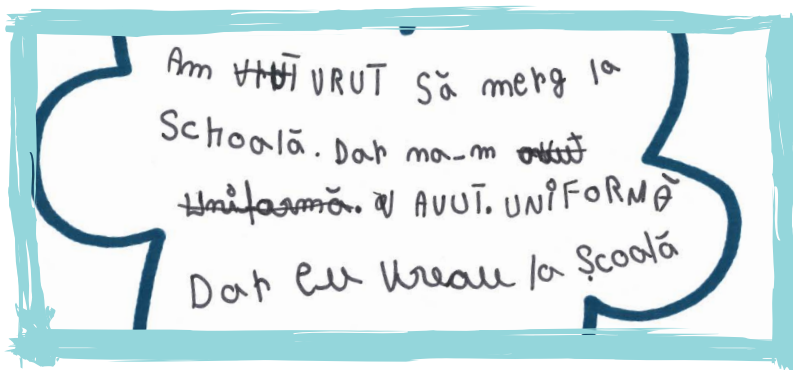 Am VRUT să merg la
Schoală. Dar na-m
AVUT. UNIFORMĂ
Dar eu vreau la școală